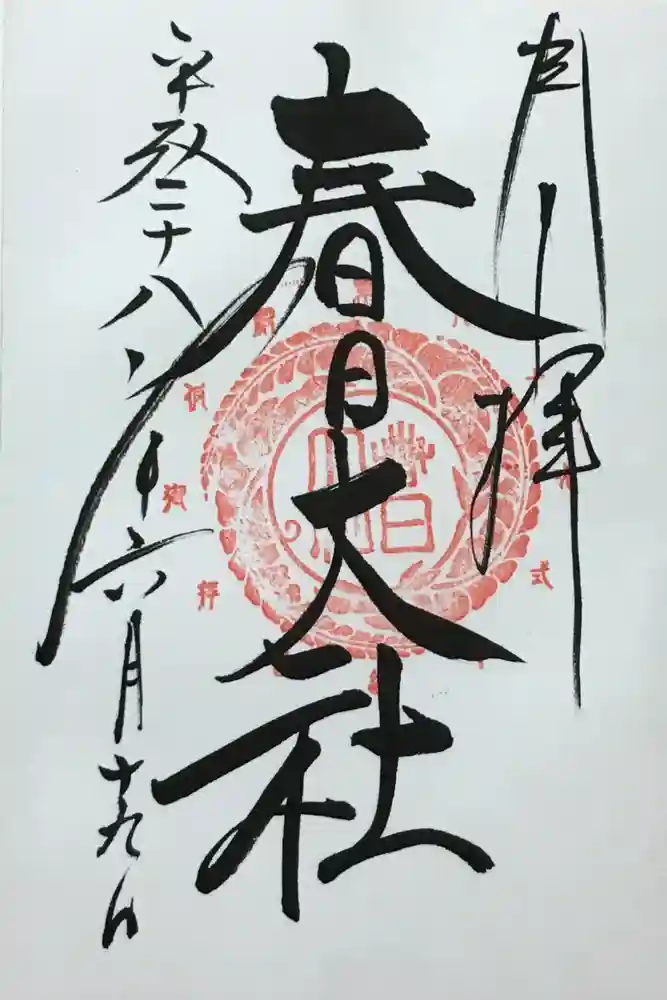 奉拝
春日大社
平成二十八年六月十九日